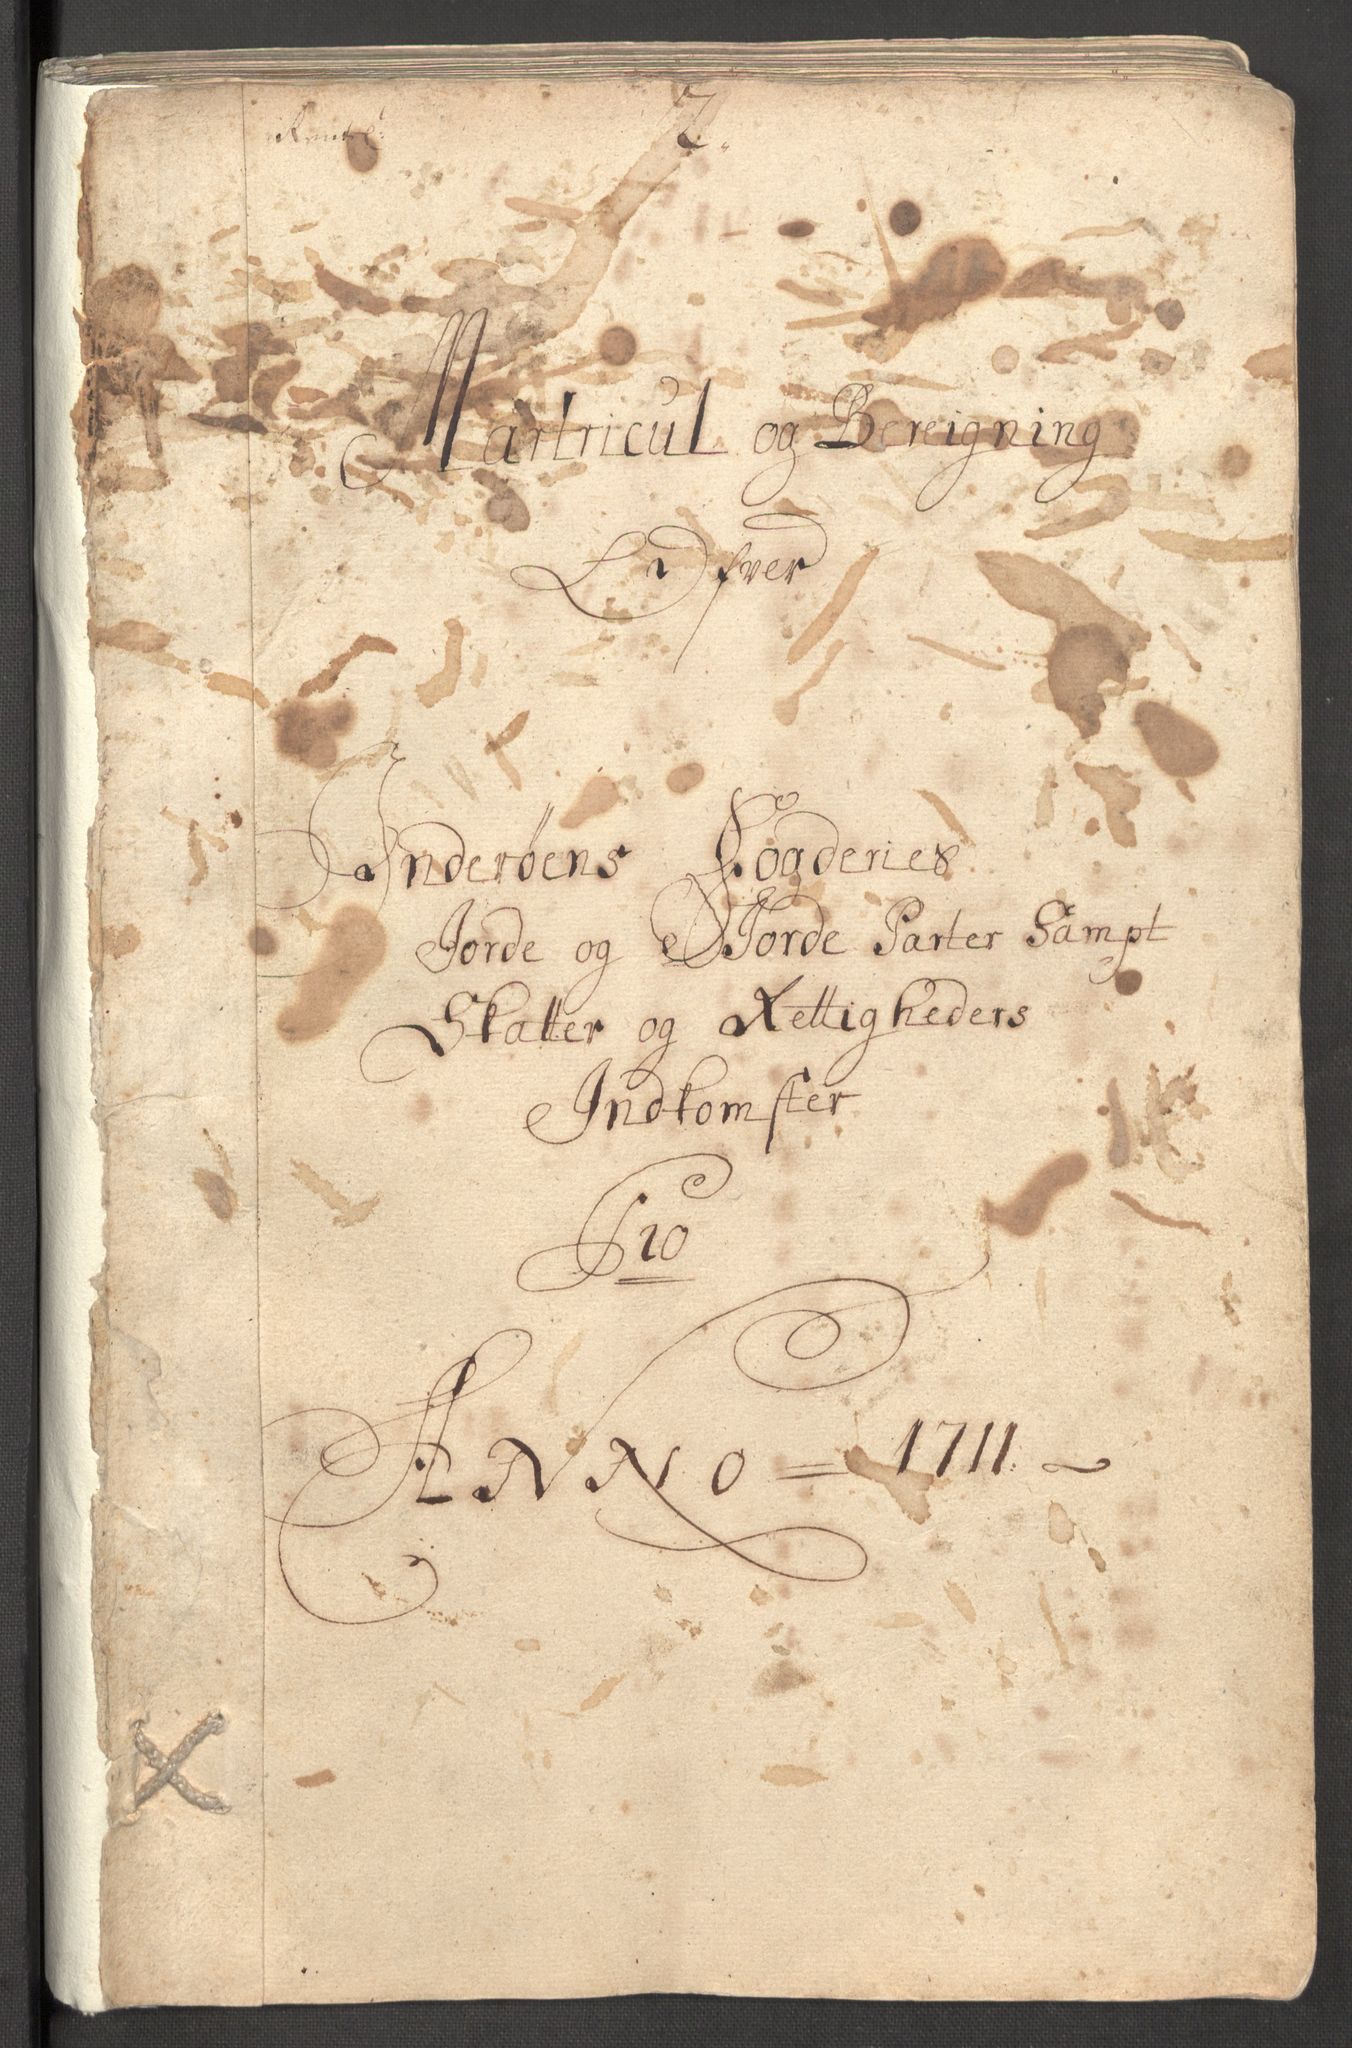 Martricul og Bereigning
Ofver
Inderöens Fögderies
Jorde og Jorde Parter Sampt
Skatter og Rettigheders
Indkomster
Pro
ANNO = 1711.